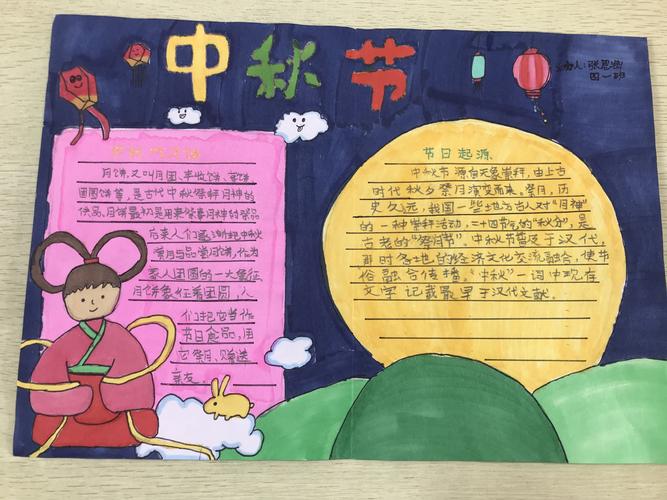 中秋节
张恩
四一班
月饼,又叫月团、丰收饼、宫饼
团圆饼等,是古代中秋祭拜月神的
供品。月饼最初是用来祭奉月神的祭品
后来人们逐渐把中秋
赏月与品尝月饼,作为
家人团圆的一大象征
月饼象征着团圆,人
们把它当作
节日食品,用
它祭月、赠送
亲友。
节日起源
中秋节源自天象崇拜,由上古
时代秋夕祭月演变而来。祭月,历
史久远,我国一些地方古人对"月神"
的一种崇拜活动,二十四节气的"秋分",是
古老的"祭月节"。中秋节普及于汉代,
那时各地的经济文化交流融合,使节
俗融合传播,"中秋"一词中现存
文字记载最早于汉代文献。